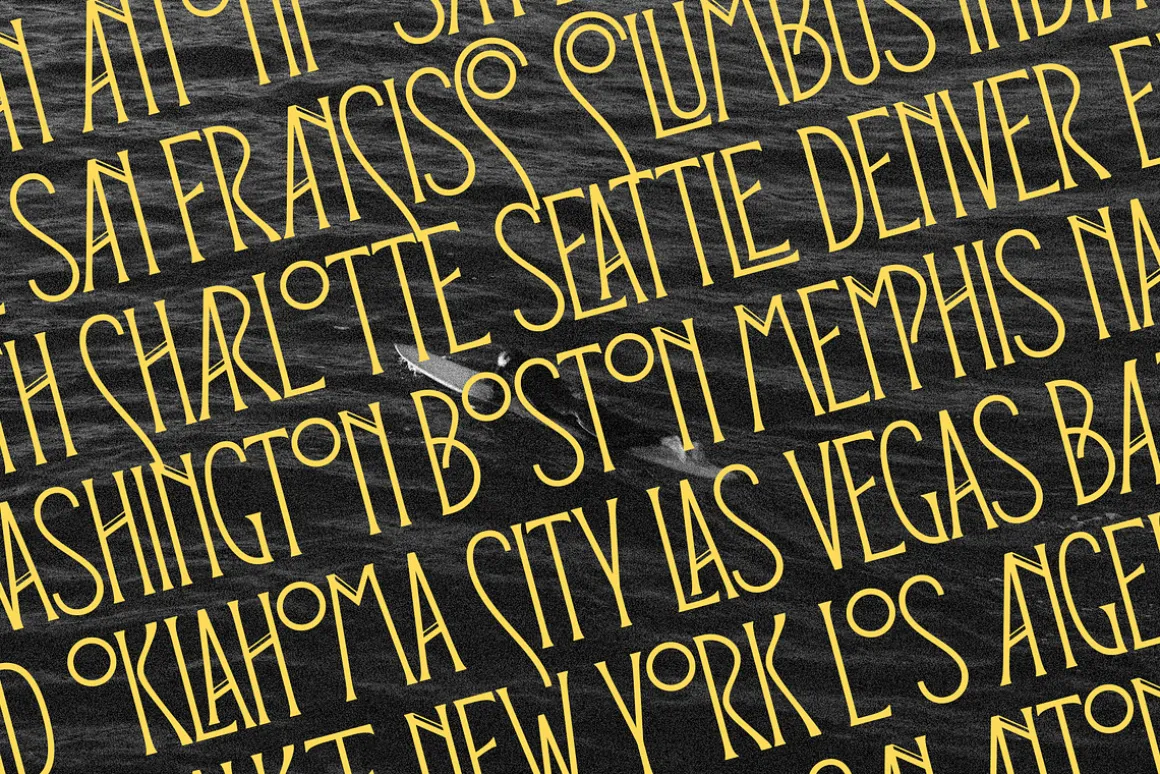 SAN FRANCISCO COLUMBUS INDIA
TH CHARLOTTE SEATTLE DENVER E
WASHINGTON BOSTON MEMPHIS NA
D OKLAHOMA CITY LAS VEGAS BA
NEW YORK LOS ANGE
ANTON